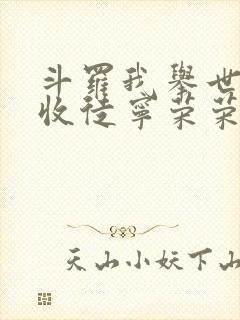 斗羅我舉世
收徒寧荣荣
天山小妖下山